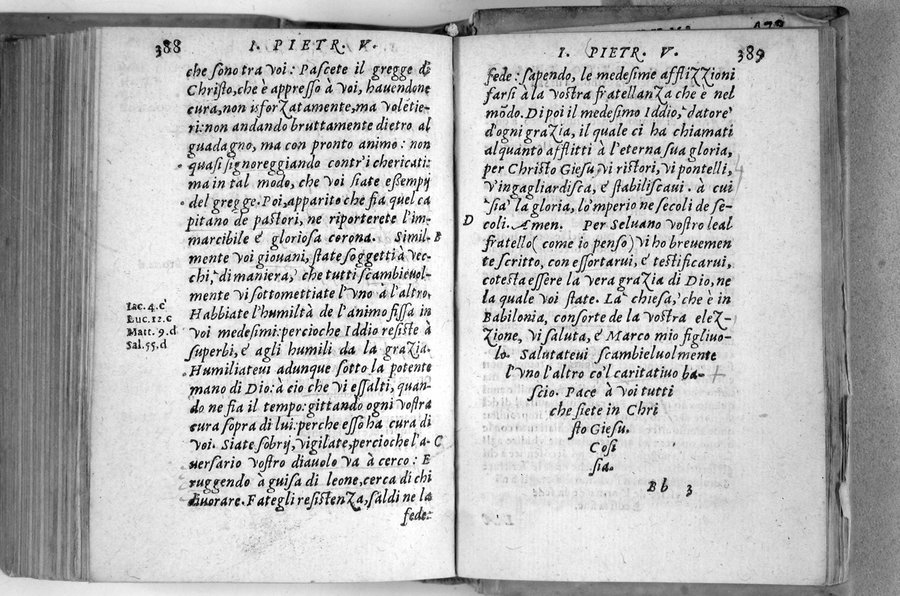 388
I. PIETR. V.
che sono tra voi: Pascete il gregge di
Christo, che è appresso à voi, hauendone
cura, non isforzatamente, ma volētie-
ri: non andando bruttamente dietro al
guadagno, ma con pronto animo: non
quasi signoreggiando contr'i chericati:
ma in tal modo, che voi siate eßempij
del gregge. Poi, apparito che sia quel ca
pitano de pastori, ne riporterete l'im-
marcibile è gloriosa corona. Simil-
B
mente voi giouani, state soggetti à vec-
chi, di maniera, che tutti scambieuol-
mente vi sottomettiate l'vno à l'altro.
Habbiate l'humiltà de l'animo fissa in
voi medesimi: percioche Iddio resiste à
superbi, è agli humili da la grazia.
Humiliateui adunque sotto la potente
mano di Dio: à cio che vi essalti, quan-
do ne fia il tempo: gittando ogni vostra
cura sopra di lui: perche esso ha cura di
voi. Siate sobrij, vigilate, percioche l'a-
C
uersario vostro diauolo va à cerco: E
ruggendo à guisa di leone, cerca di chi
diuorare. Fategli resistenza, saldi ne la
fede:
Iac. 4. c
Luc. 12. c
Matt. 9. d
Sal. 55. d
I. PIETR. V.
389
fede: sapendo, le medesime afflizzioni
farsi à la vostra fratellanza che è nel
mōdo. Dipoi il medesimo Iddio, datore
d'ogni grazia, il quale ci ha chiamati
alquanto afflitti à l'eterna sua gloria,
per Christo Giesu, vi ristori, vi pontelli,
v'ingagliardisca, è stabiliscaui. à cui
sia la gloria, lo'mperio ne secoli de se-
D
coli. Amen. Per Seluano vostro leal
fratello (come io penso) vi ho breuemen
te scritto, con essortarui, è testificarui,
cotesta essere la vera grazia di Dio, ne
la quale voi state. La chiesa, che è in
Babilonia, consorte de la vostra elez-
zione, vi saluta, è Marco mio figliuo-
lo. Salutateui scambieluolmente
l'vno l'altro co'l caritatiuo ba-
scio. Pace à voi tutti
che siete in Chri
sto Giesu.
Cosi
sia.
Bb 3